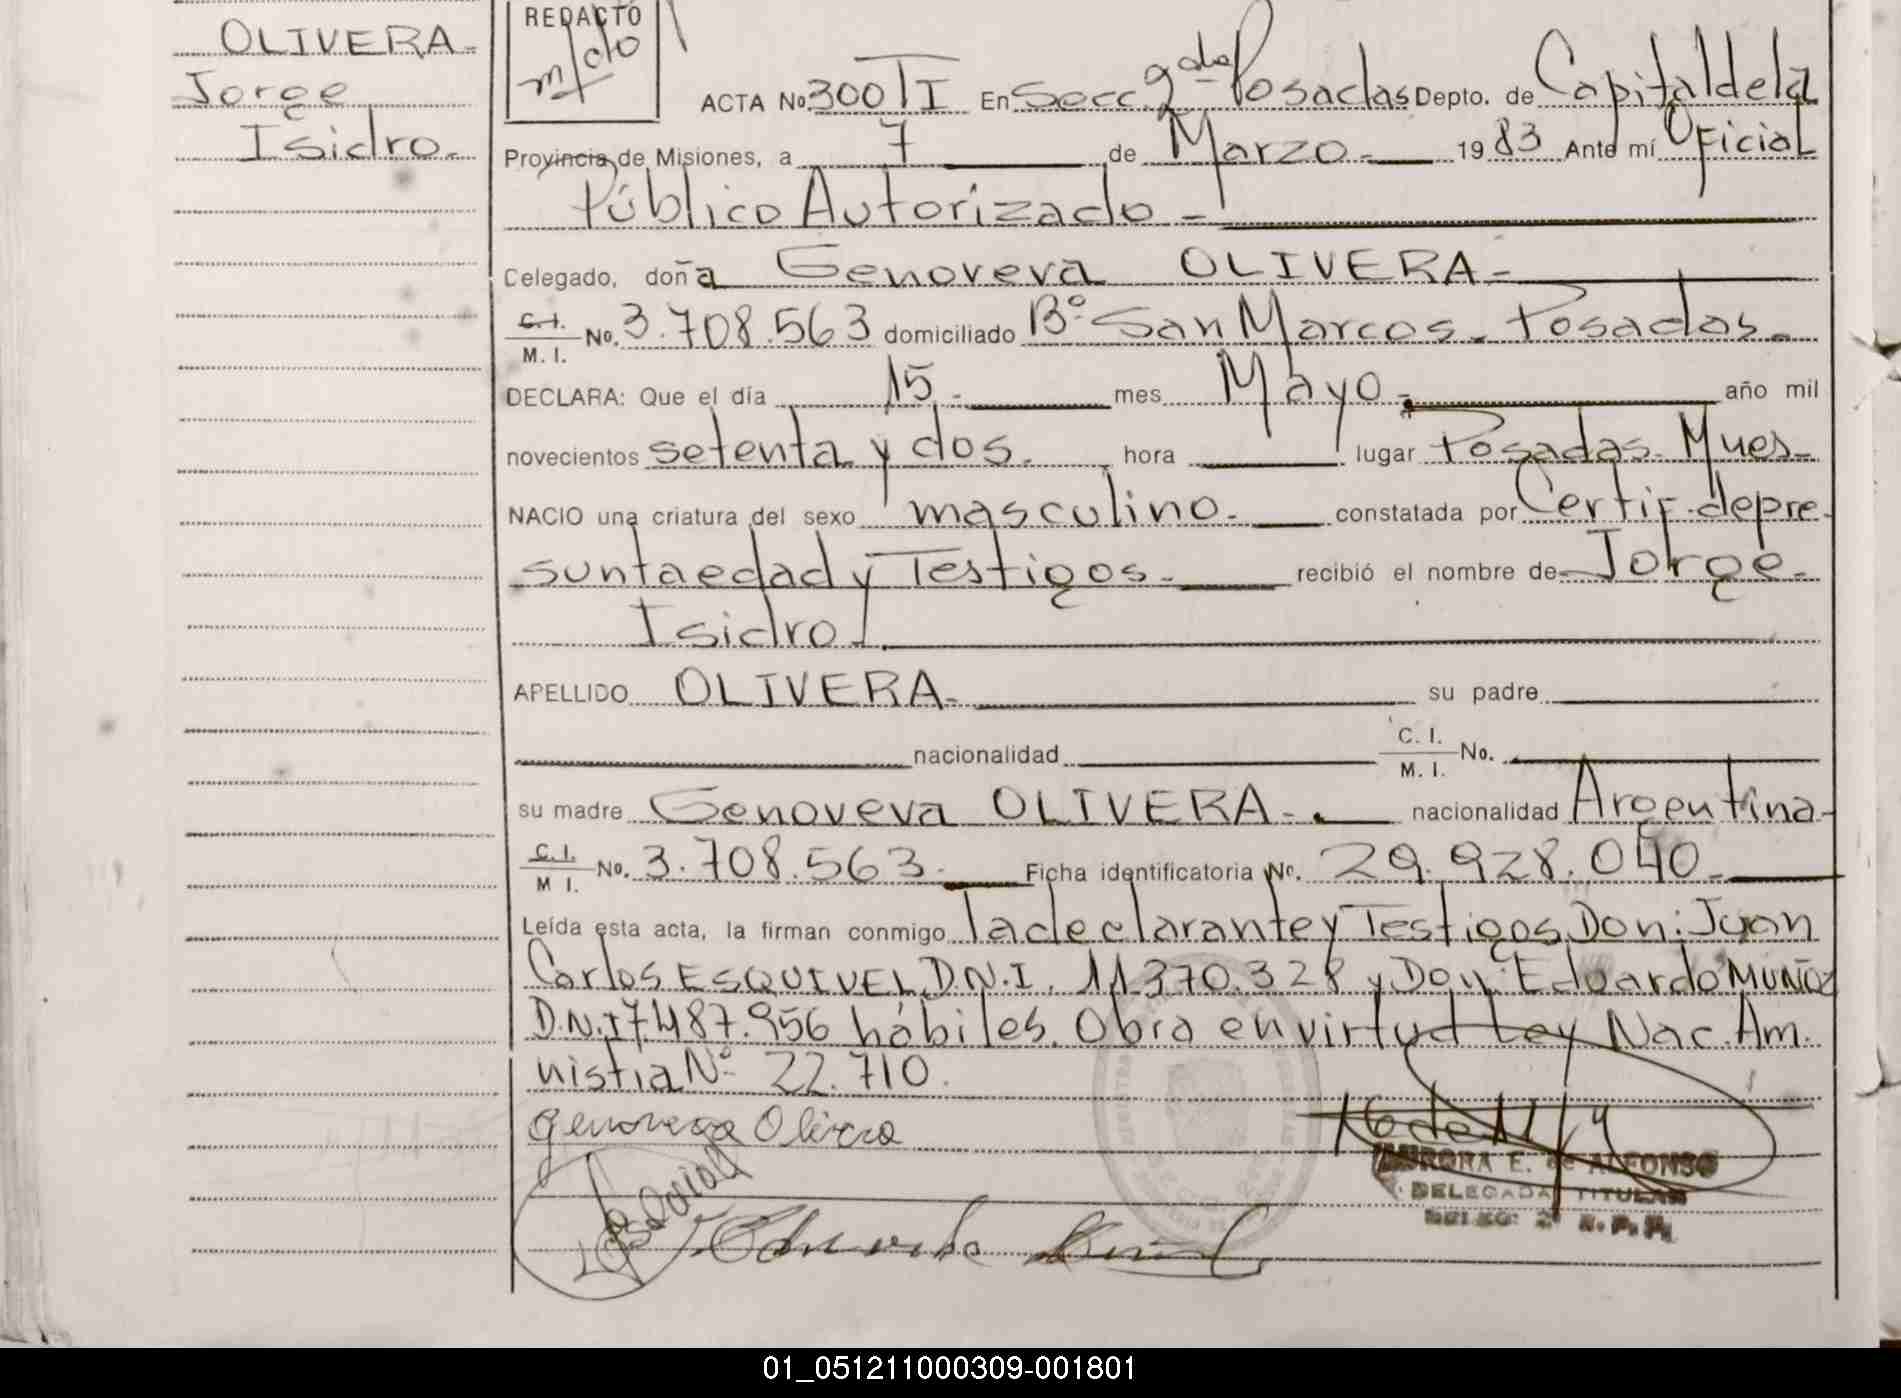 OLIVERA-
Jorge
Isidro.-
REDACTO
ACTA No. 300 TI En Secc. 2da Posadas Depto. de Capital de la
Provincia de Misiones, a 7 de Marzo.- 1983 Ante mí Oficial
Público Autorizado -
Celegado, doña Genoveva OLIVERA-
C.I. / M. I. No. 3.708.563 domiciliado Bº San Marcos - Posadas.-
DECLARA: Que el día 15.- mes Mayo.- año mil
novecientos setenta y dos. hora lugar Posadas. Mnes-
NACIO una criatura del sexo masculino.- constatada por Certif. de pre-
sunta edad y Testigos.- recibió el nombre de Jorge-
Isidro.-
APELLIDO OLIVERA.- su padre
nacionalidad C. I. / M. I. No.
su madre Genoveva OLIVERA.- nacionalidad Argentina-
C.I. / M I. No. 3.708.563.- Ficha identificatoria No. 29.928.040.-
Leída esta acta, la firman conmigo la declarante y Testigos Don: Juan
Carlos ESQUIVEL D.N.I. 11.370.328 y Don: Eduardo MUÑOZ
D.N.I 7.487.956 hábiles. Obra en virtud Ley Nac. Am.
nistia Nº 22.710.
Genoveva Olivera
AURORA E. de ALFONSO
DELEGADA TITULAR
DELEG. 2ª R. P. P.
01_051211000309-001801